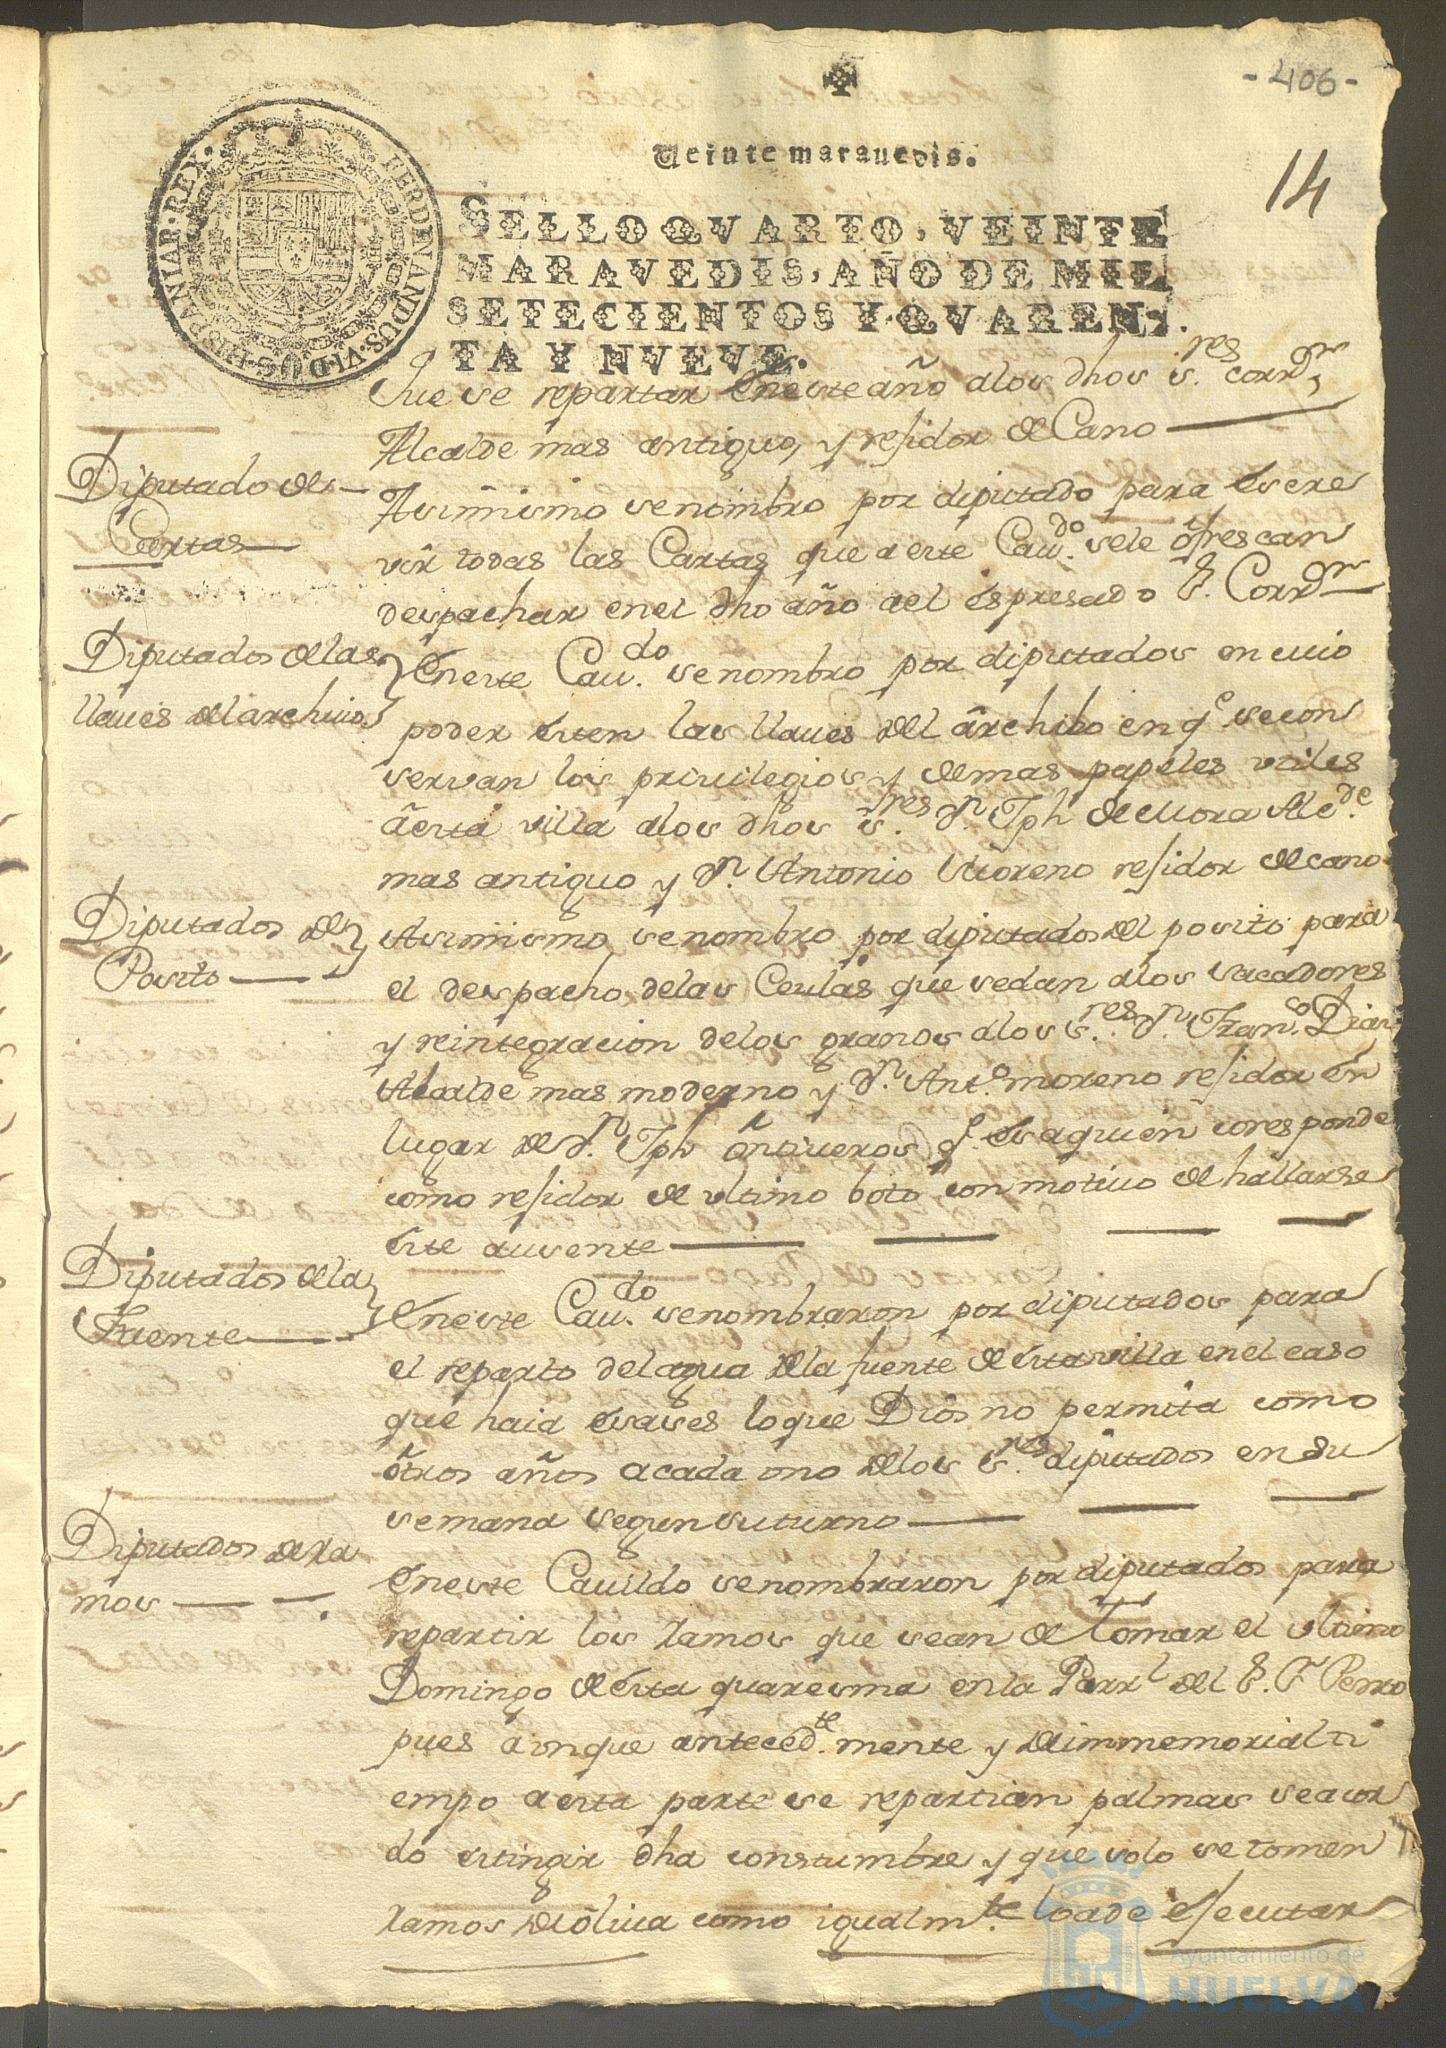 - 406 -
14
Veinte maravedis.
SELLO QVARTO, VEINTE
MARAVEDIS, AÑO DE MIL
SETECIENTOS Y QVAREN-
TA Y NVEVE.
FERDENANDUS.VI.D.G.HISPANIAR.REX.
Que se repartan en este año a los dhos s.res corr.or
Alcalde mas antiguo, y rejidor de Cano
Diputado de
Cartas
Asimismo se nombro por diputado para escre
vir todas las Cartas que a este Cau.do se le ofrescan
despachar en el dho año a el espresado S. Corr.or
Diputados de las
llaues del archiuo
En este Cau.do se nombro por diputados en cuio
poder esten las llaues del archibo en q.e se con
servan los priuilegios y demas papeles utiles
a esta villa a los dhos s.res d.n Jph de Mora Alc.de
mas antiguo y d.n Antonio Moreno rejidor de cano
Diputados de
Posito
Asimismo se nombro por diputados del posito para
el despacho de las Ceulas que se dan a los sacadores
y reintegracion de los granos a los s.res d.n Fran.co Dias
Alcalde mas moderno y d.n Ant.o moreno rejidor en
lugar de d.n Jph ontiueros q.e es a quien coresponde
como rejidor de ultimo boto con motiuo de hallarse
este ausente
Diputados de la
Fuente
En este Cau.do se nombraron por diputados para
el reparto del agua de la fuente de esta villa en el caso
que haia esases lo que Dios no permita como
otros años a cada ono de los s.res diputados en su
semana segun su turno
Diputados de ra
mos
En este Cauildo se nombraron por diputados para
repartir los ramos que sean de tomar el ultimo
Domingo de esta quaresma en la Parr.l del S. S. Pedro
pues aunque anteced.te mente y de immemorial ti
empo a esta parte se repartian palmas se acor
do estingir dha constumbre y que solo se tomen
ramos de oliua como igualm.te loade ejecutar
Ayuntamiento de
HUELVA